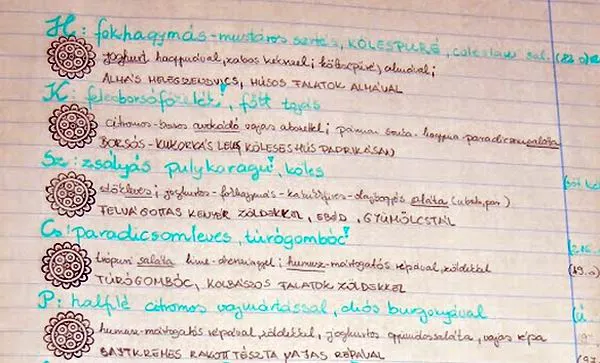 H: fokhagymás-mustáros sertés, KÖLESPÜRÉ, coleslaw sal. (82. o)
joghurt hagymával, zabos keksszel; kölespüré, almával;
ALMÁS MELEGSZENDVICS, HÚSOS FALATOK ALMÁVAL
K: felesborsófőzelék, főtt tojás
citromos-boros avokádó vajas abonettel; pármai sonka-hagyma-paradicsomsaláta
BORSÓS-KUKORICÁS KÖLESESHÚS PAPRIKÁSAN
Sz: zsályás pulykaragu, köles
zöldleves; joghurtos-fokhagymás- saláta
KENYÉR ZÖLDEKKEL, EBÉD, GYÜMÖLCSTÁL
Cs: paradicsomleves, túrógombóc
trópusi saláta lime-dresszinggel; humusz-mártogatós répával, zöldekkel
TÚRÓGOMBÓC, KOLBÁSZOS FALATOK ZÖLDEKKEL
P: halfilé citromos vajmártással, diós burgonyával
humusz-mártogatós répával, zöldekkel, joghurtos saláta, vajas répa
SAJTKRÉMES RAKOTT TÉSZTA VAJAS RÉPÁVAL